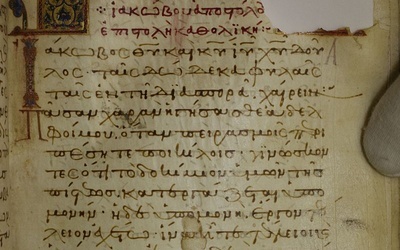 ἰακώβου ἀποστόλου
ἐπιστολὴ καθολική:
Ἰάκωβος θυ καὶ κυ ἰυ χυ δοῦ
λος· ταῖς δώδεκα φυλαῖς
ταῖς ἐν τῇ διασπορᾷ, χαίρειν·
πᾶσαν χαρὰν ἡγήσασθε ἀδελ
φοί μου, ὅταν πειρασμοῖς περι
πέσητε ποικίλοις· γινώσκον
τες ὅτι τὸ δοκίμιον ὑμῶν τῆς
πίστεως, κατεργάζεται ὑπο
μονήν· ἡ δὲ ὑπομονὴ, ἔργον τέ
λειον ἐχέτω· ἵνα ἦτε τέλειοι